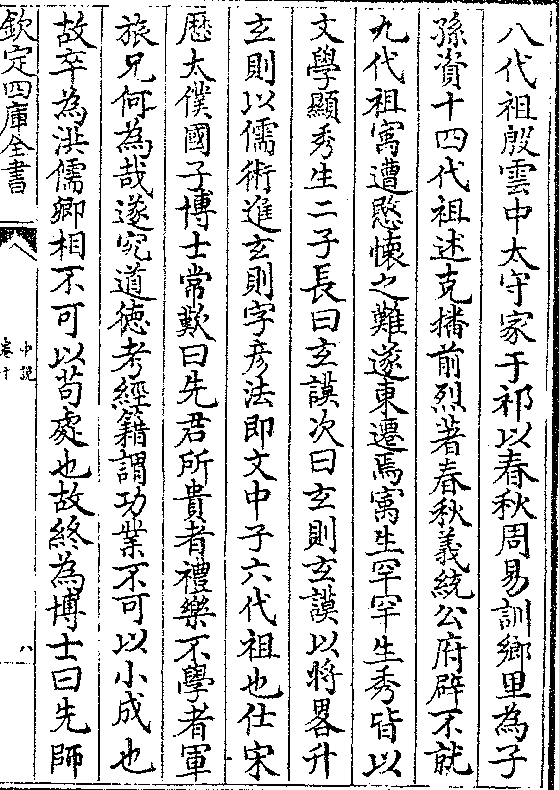 八代祖殷雲中太守家于祁以春秋周易訓鄉里為子
孫資十四代祖述克播前烈著春秋義統公府辟不就
九代祖寓遭愍懷之難遂東遷焉寓生罕罕生秀皆以
文學顯秀生二子長曰玄謨次曰玄則玄謨以將畧升
玄則以儒術進玄則字彦法即文中子六代祖也仕宋
歴太僕國子博士常歎曰先君所貴者禮樂不學者軍
旅兄何為哉遂究道徳考經籍謂功業不可以小成也
故卒為洪儒卿相不可以苟處也故終為博士曰先師
欽定四庫全書
中說
卷十
八